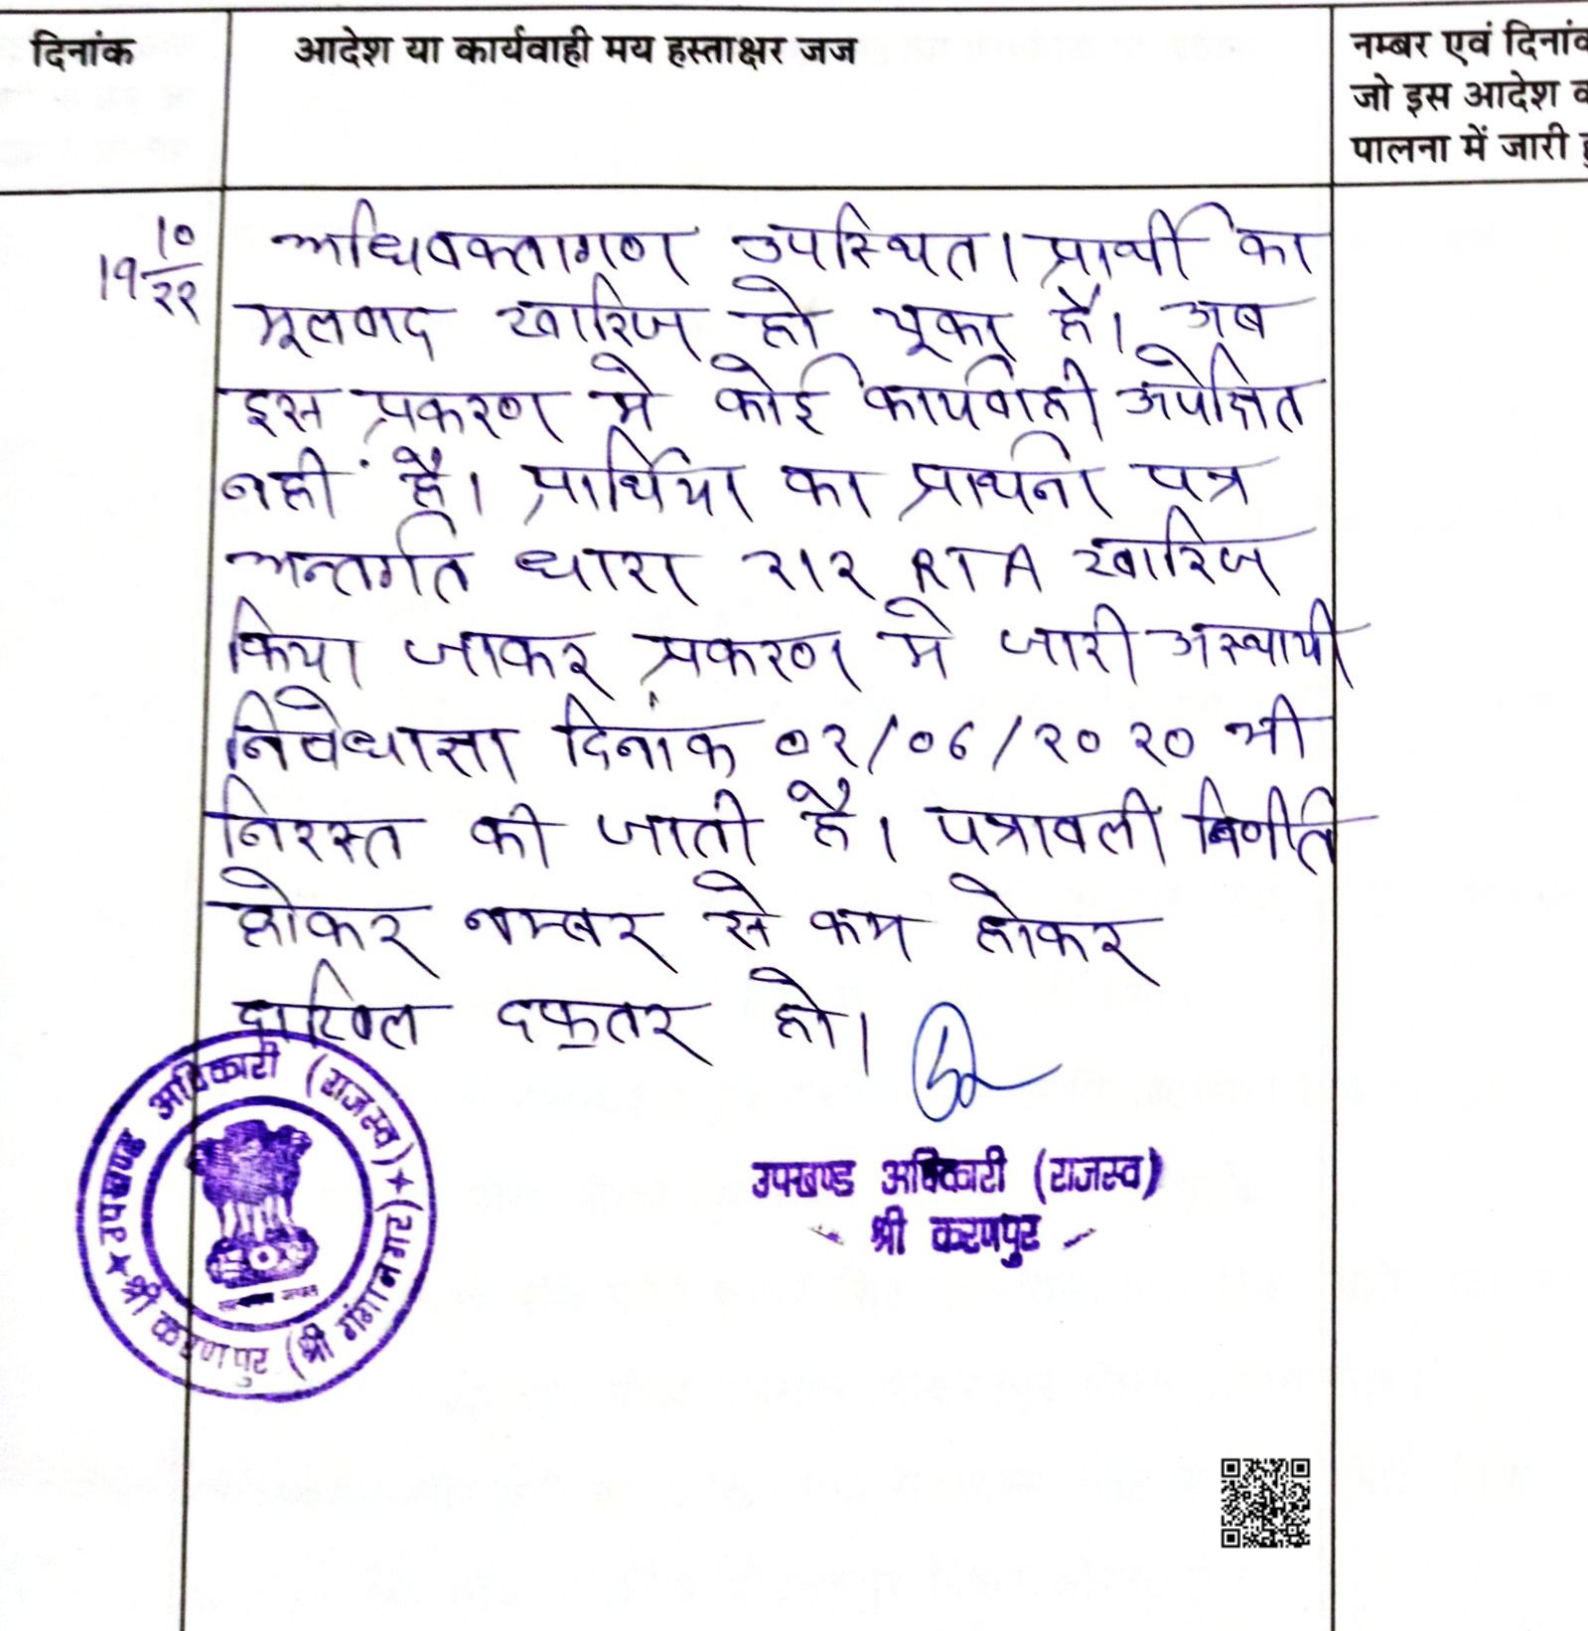 दिनांक
आदेश या कार्यवाही मय हस्ताक्षर जज
नम्बर एवं दिनांक
जो इस आदेश क
पालना में जारी हु
19 10/22
अधिवक्तागण उपस्थित। प्रार्थी का
मूलवाद खारिज हो चूका है। अब
इस प्रकरण मे कोई कार्यवाही अपेक्षित
नहीं है। प्रार्थिया का प्रार्थना पत्र
अन्तर्गत धारा 212 RTA खारिज
किया जाकर प्रकरण मे जारी अस्थायी
निषेधाज्ञा दिनांक 02/06/2020 भी
निरस्त की जाती है। पत्रावली निर्णीत
होकर नम्बर से कम होकर
दाखिल दफ्तर हो।
उपखण्ड अधिकारी (राजस्व)
श्री करणपुर
उपखण्ड अधिकारी (राजस्व)
श्री करणपुर (श्री गंगानगर)